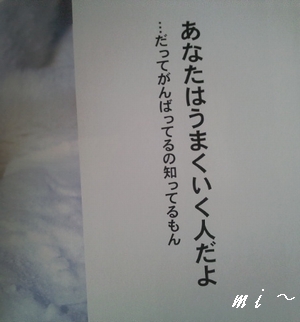 あなたはうまくいく人だよ
…だってがんばってるの知ってるもん
mi~